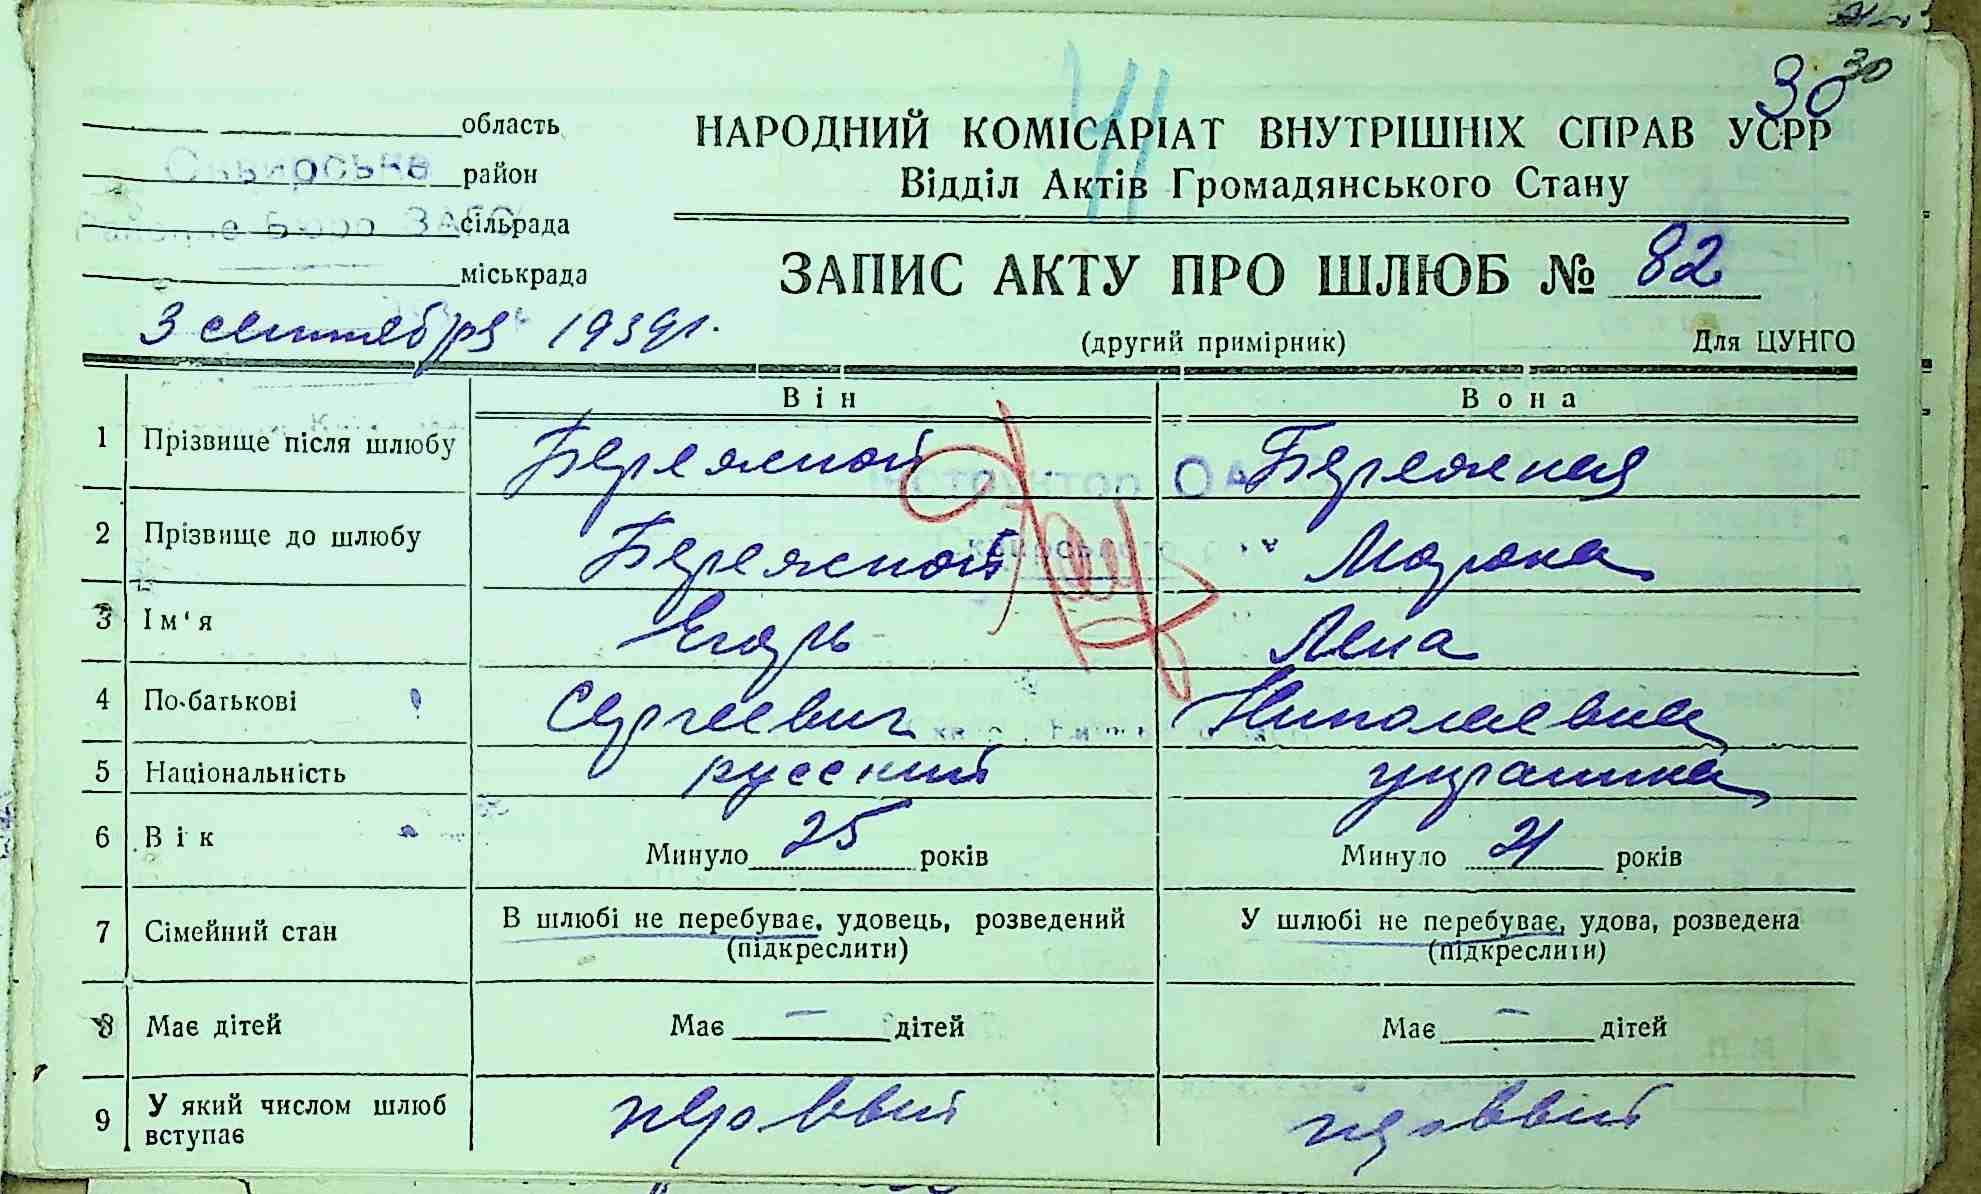 30 30
41
область
Сквирське
район
Районне Бюро ЗАГС
сільрада
міськрада
НАРОДНИЙ КОМІСАРІАТ ВНУТРІШНІХ СПРАВ УСРР
Відділ Актів Громадянського Стану
ЗАПИС АКТУ ПРО ШЛЮБ № 82
3 сентября 1939г.
(другий примірник) Для ЦУНГО
Він Вона
1 Прізвище після шлюбу Бережной Бережная
2 Прізвище до шлюбу Бережной
3 Ім‘я Егорь Лена
4 По-батькові Сергеевич Николаевна
5 Національність русский украинка
6 Вік Минуло 25 років Минуло 21 років
7 Сімейний стан В шлюбі не перебуває, удовець, розведений У шлюбі не перебуває, удова, розведена
(підкреслити) (підкреслити)
8 Має дітей Має — дітей Має — дітей
9 У який числом шлюб
вступає первый первый